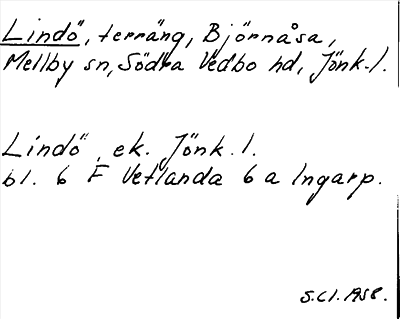 Lindö, terräng, Björnåsa,
Mellby sn, Södra Vedbo hd, Jönk. l.
Lindö, ek. Jönk. l.
bl. 6 F Vetlanda 6 a Ingarp.
S.Cl. 1958.